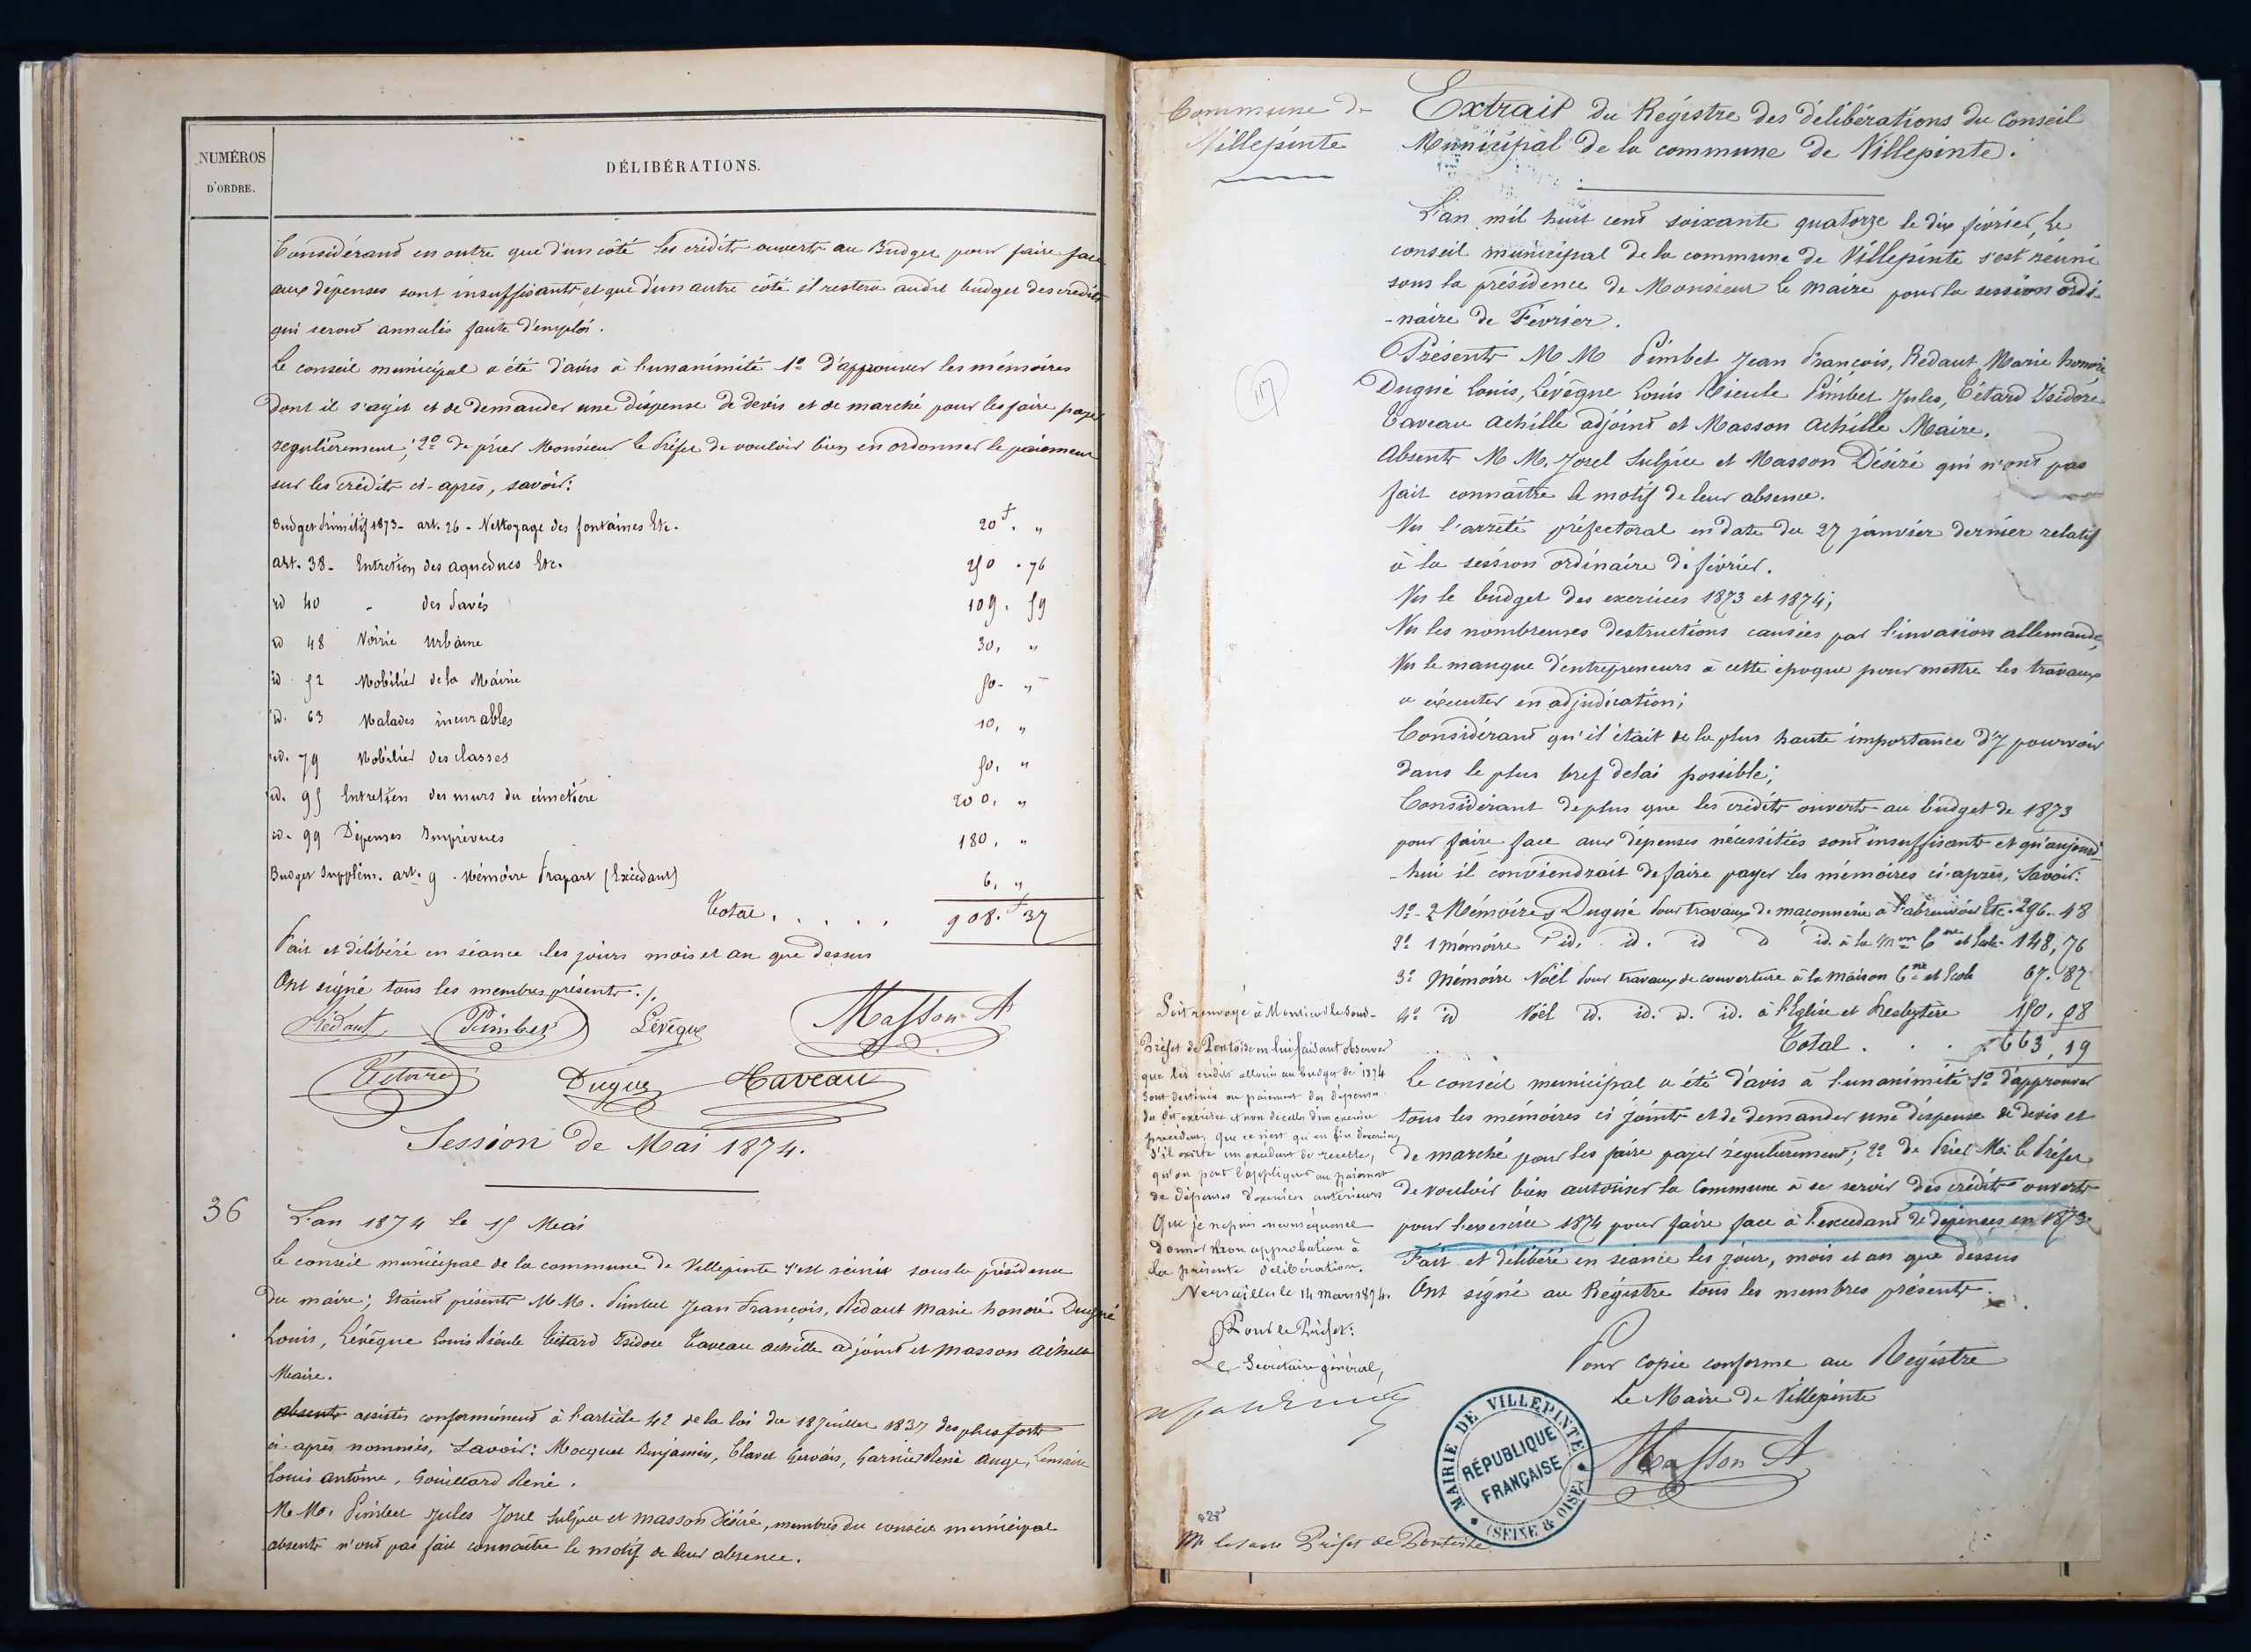 NUMÉROS
D'ORDRE.
DÉLIBÉRATIONS.
Considérant en outre que d'un côté les crédits ouverts au Budget pour faire face
aux dépenses sont insuffisants et que d'un autre côté il restera audit budget des crédits
qui seront annulés faute d'emploi.
Le conseil municipal a été d'avis à l'unanimité 1º d'approuver les mémoires
dont il s'agit et de demander une dispense de devis et de marché pour les faire payer
régulièrement; 2º de prier Monsieur le Préfet de vouloir bien en ordonner le paiement
sur les crédits ci-après, savoir:
Budget Primitif 1873 - art. 26 - Nettoyage des fontaines Etc. 20f. "
art. 38 - Entretien des aqueducs Etc. 250 . 76
id 40 - des Pavés 109. 59
id 48 Voirie urbaine 30, "
id 52 Mobilier de la Mairie 50 - "
id. 63 Malades incurables 10, "
id. 79 Mobilier des classes 50, "
id. 95 Entretien des murs du cimetière 200, "
id. 99 Dépenses Imprévues 180, "
Budget Supplém. art. 9 - Mémoire Frapart (Excédant) 6, "
Total . . . . . 908.f 37
Fait et délibéré en séance les jours mois et an que dessus
Ont signé tous les membres présents ./.
Rédaut Pimbet Lévêque Masson A
Tétard Dugué Taveau
Session de Mai 1874.
36
L'an 1874 le 15 Mai
le conseil municipal de la commune de Villepinte s'est réuni sous la présidence
du maire; Etaient présents M.M. Pimbet Jean François, Rédaut Marie honoré Dugué
Louis, Lévêque Louis Nicule Tétard Isidore Taveau achille adjoint et Masson achille
Maire.
absents assistés conformément à l'article 42 de la loi du 18 Juillet 1837 des plus forts
ci-après nommés, Savoir: Mocquet Benjamin, Clavel Gervais, Garnier René Ange, Lemaire
Louis antoine, Gouillard René.
M.M. Pimbet Jules Jorel Sulpice et Masson Désiré, membres du conseil municipal
absents n'ont pas fait connaître le motif de leur absence.
Commune de
Villepinte
117
Extrait du Régistre des délibérations du Conseil
Municipal de la commune de Villepinte.
L'an mil huit cent soixante quatorze le dix février, le
conseil municipal de la commune de Villepinte s'est réuni
sous la présidence de Monsieur le Maire pour la session ordi-
-naire de Février.
Présents M M Pimbet Jean François, Rédaut Marie honoré
Dugué Louis, Lévêque Louis Nicule Pimbet Jules, Tétard Isidore
Taveau Achille adjoint et Masson Achille Maire.
Absents M M. Jorel Sulpice et Masson Désiré qui n'ont pas
fait connaître le motif de leur absence.
Vu l'arrêté préfectoral en date du 27 janvier dernier relatif
à la session ordinaire de février.
Vu le budget des exercices 1873 et 1874;
Vu les nombreuses destructions causées par l'invasion allemande,
Vu le manque d'entrepreneurs à cette époque pour mettre les travaux
a éxécuter en adjudication;
Considérant qu'il était de la plus haute importance d'y pourvoir
dans le plus bref délai possible;
Considérant de plus que les crédits ouverts au budget de 1873
pour faire face aux dépenses nécessitées sont insuffisants et qu'aujourd-
-hui il conviendrait de faire payer les mémoires ci-après, Savoir:
1º - 2 Mémoires Dugué pour travaux de maçonnerie à l'abreuvoir Etc. 296. 48
2º 1 mémoire id. id. id d id. à la Mon Cne et Ecole 148,76
3º Mémoire Noël pour travaux de couverture à la Maison Cne et Ecole 67. 87
4º id Noël d. id. d. id. à l'Eglise et Presbytère 150, 08
Total . . . . 663, 19
Le conseil municipal a été d'avis à l'unanimité 1º d'approuver
tous les mémoires ci joints et de demander une dispense de devis et
de marché pour les faire payer régulièrement; 2º de Prier Mr le Préfet
de vouloir bien autoriser la Commune à se servir des crédits ouverts
pour l'exercice 1874 pour faire face à l'excédant de dépenses en 1873.
Fait et délibéré en séance les jour, mois et an que dessus
Ont signé au Régistre tous les membres présents.
Pour copie conforme au Régistre
Le Maire de Villepinte
Masson A
MAIRIE DE VILLEPINTE
RÉPUBLIQUE
FRANÇAISE
(SEINE & OISE)
Soit renvoyé à Monsieur le Sous-
Préfet de Pontoise en lui faisant observer
que les crédits alloués au budget de 1874
sont destinés au paiement des dépenses
du dit exercice et non de celles d'un exercice
précédent; que ce n'est qu'en fin d'exercice,
s'il existe un excédant de recette,
qu'on peut l'appliquer au paiement
de dépenses d'exercices antérieurs
Que je ne puis en conséquence
donner mon approbation à
la présente délibération.
Versailles le 14 mars 1874.
Pour le Préfet:
Le Secrétaire général,
Mr le Sous Préfet de Pontoise